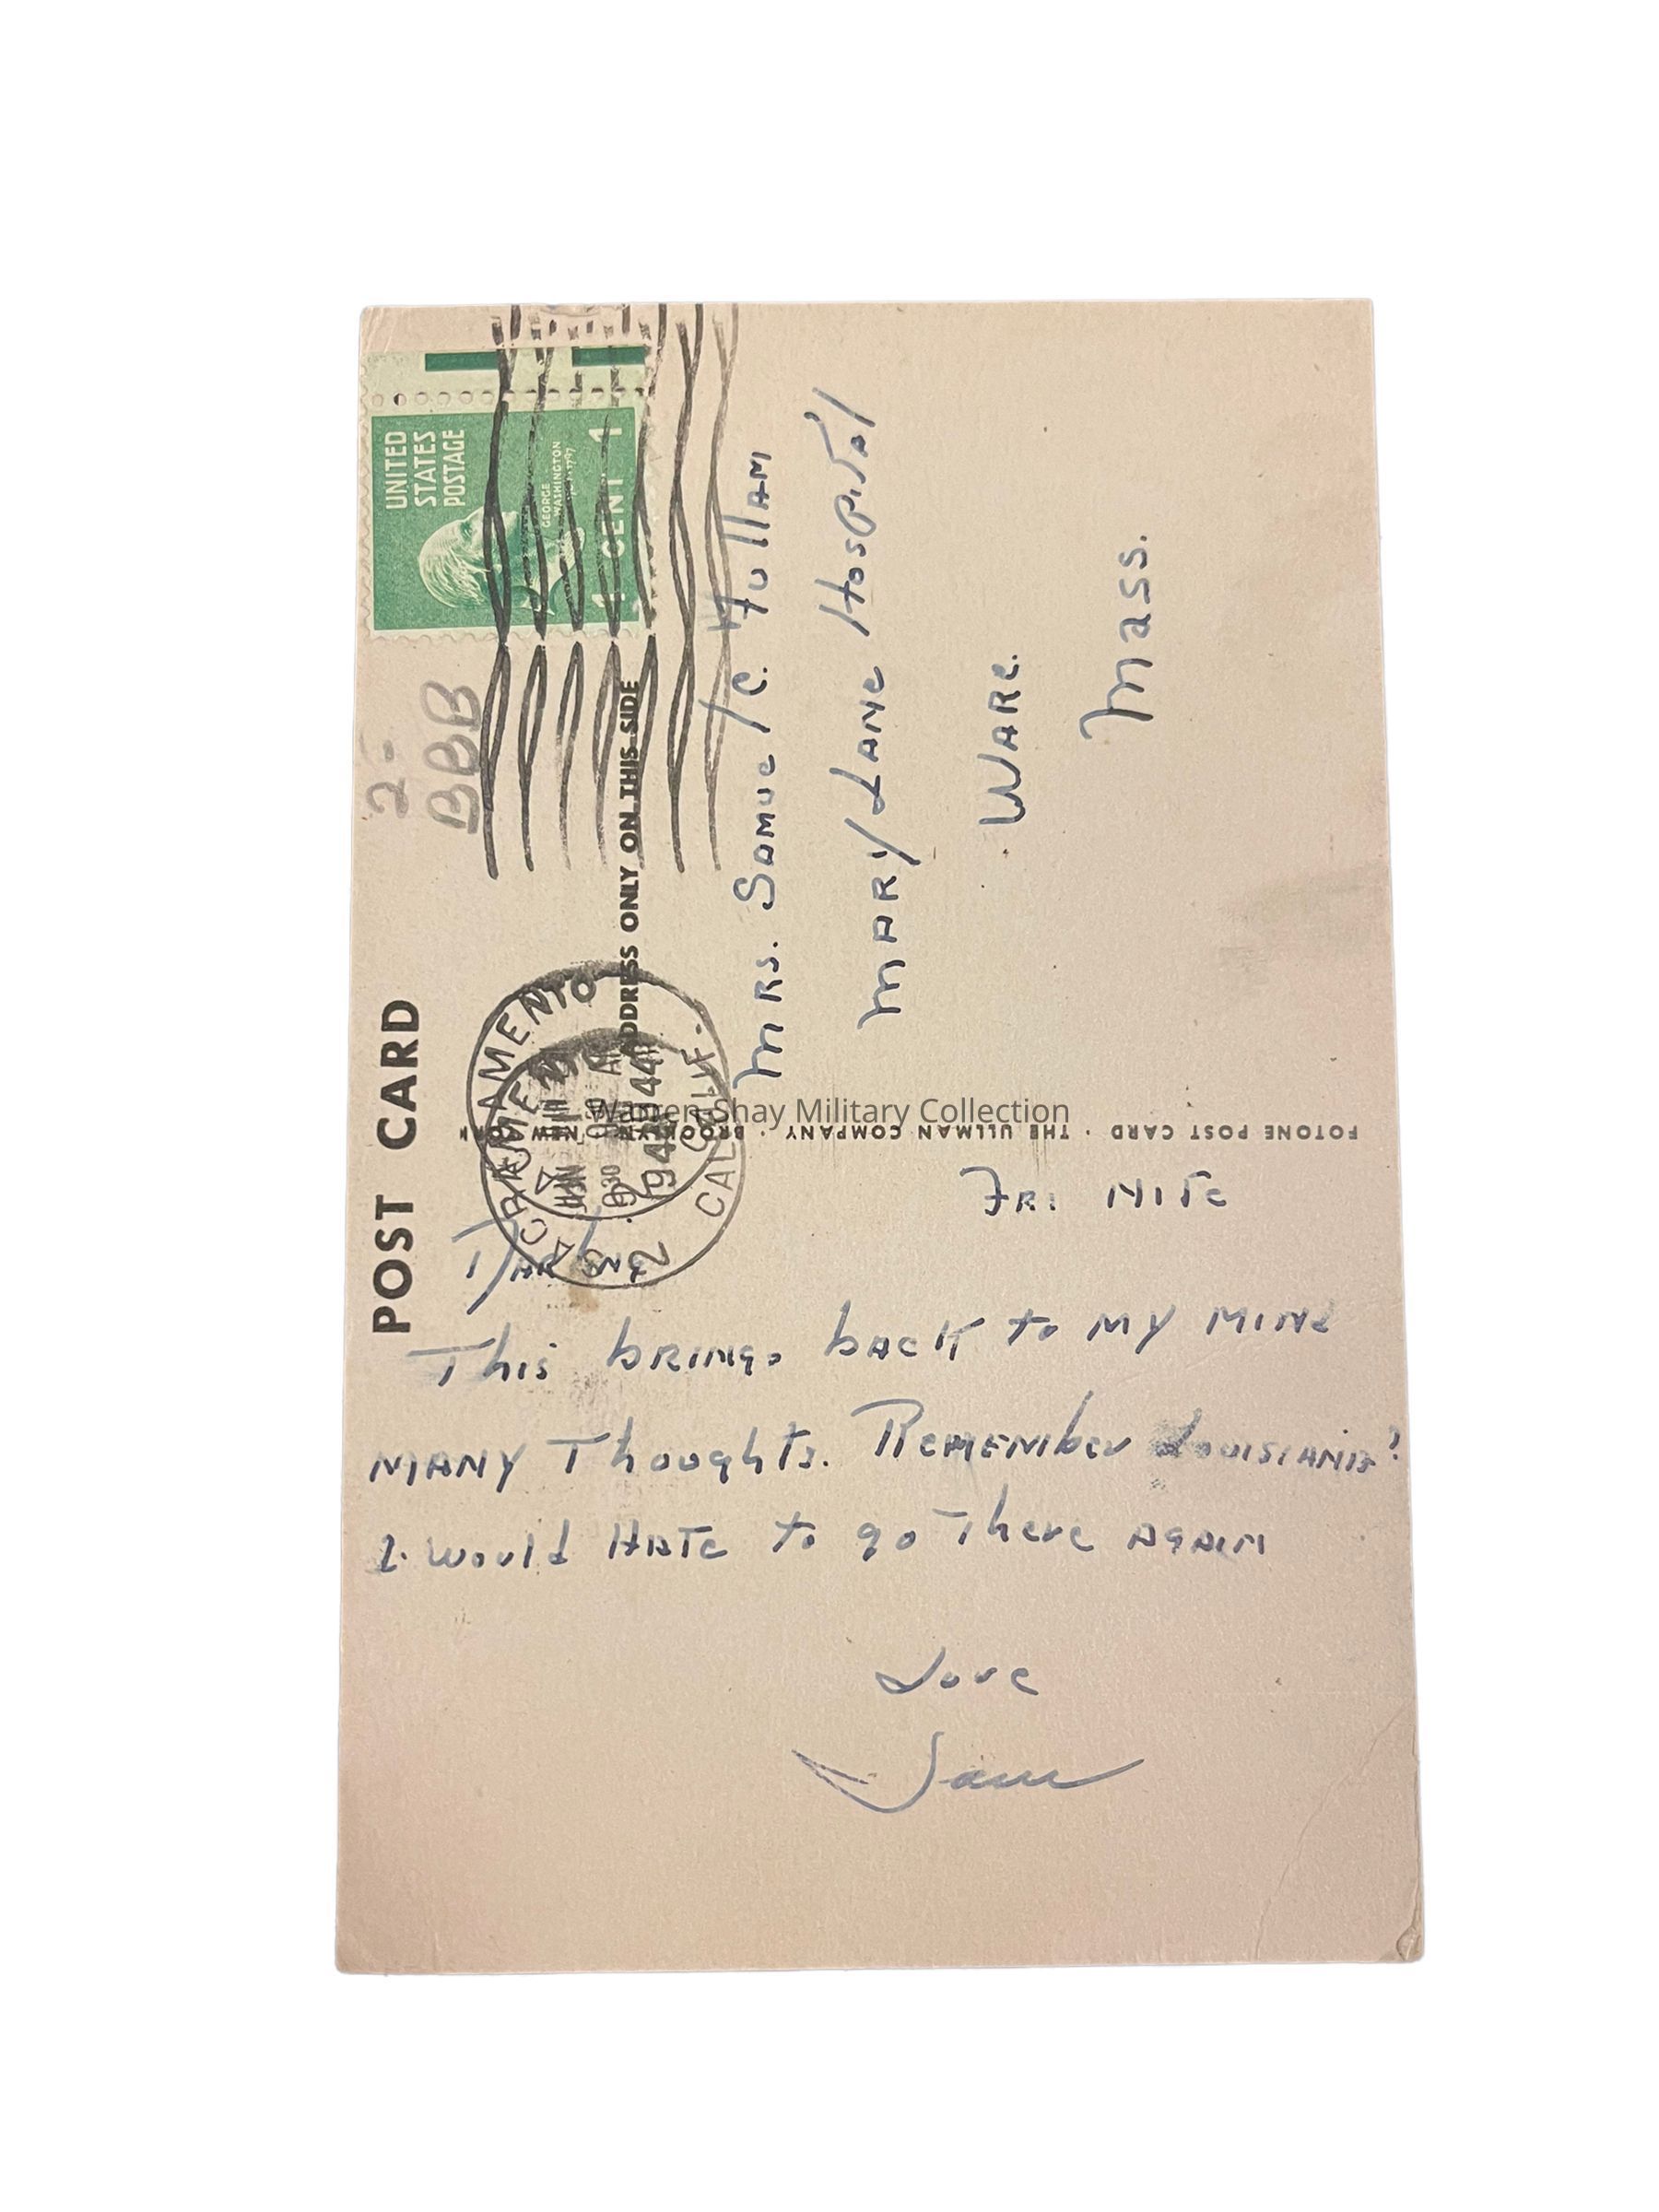 POST CARD
2-
BBB
UNITED
STATES
POSTAGE
GEORGE
WASHINGTON
1 CENT 1
SACRAMENTO
CALIF.
JAN
9 30
1944
2
ADDRESS ONLY ON THIS SIDE
Mrs. Samuel C. Fullam
Mary Lane Hospital
Ware.
Mass.
Warren Shay Military Collection
FOTONE POST CARD · THE ULLMAN COMPANY · BROOKLYN, NEW YORK
Fri Nite
Darling
This brings back to my mind
many thoughts. Remember Louisiana?
I would Hate to go there again
Love
Sam